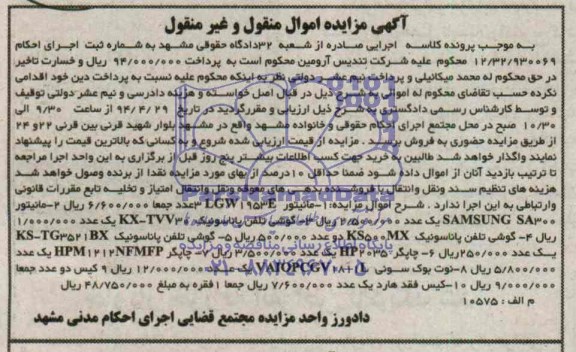 آگهی مزایده اموال منقول و غیر منقول
به موجب پرونده کلاسه اجرایی صادره از شعبه ۳۲دادگاه حقوقی مشهد به شماره ثبت اجرای احکام
۱۲/۳۲/۹۳۰۰۶۹ محکوم علیه شرکت تندیس آرومین محکوم است به پرداخت ۹۴/۰۰۰/۰۰۰ ریال و خسارت تاخیر
در حق محکوم له محمد میکائیلی و پرداخت نیم عشر دولتی نظر به اینکه محکوم علیه نسبت به پرداخت دین خود اقدامی
نکرده حسب تقاضای محکوم له اموال به شرح ذیل در قبال اصل خواسته و هزینه دادرسی و نیم عشر دولتی توقیف
و توسط کارشناس رسمی دادگستری به شرح ذیل ارزیابی و مقررگردید در تاریخ ۹۴/۴/۲۹ از ساعت ۹/۳۰ الی
۱۰/۳۰ صبح در محل مجتمع اجرای احکام حقوقی و خانواده مشهد واقع در مشهد بلوار شهید قرنی بین قرنی ۲۲و ۲۴
از طریق مزایده حضوری به فروش برسد. مزایده از قیمت ارزیابی شده شروع و به کسانی که بالاترین قیمت را پیشنهاد
نمایند واگذار خواهد شد طالبین به خرید جهت کسب اطلاعات بیشتر پنج روز قبل از برگزاری به این واحد اجرا مراجعه
تا ترتیب بازدید آنان از اموال داده شود ضمنا حداقل ۱۰درصد بهای مورد مزایده نقدا از برنده وصول خواهد شد
هزینه های تنظیم سند ونقل وانتقال با فروشنده بدهی های معوقه ونقل وانتقال امتیاز و تخلیه تابع مقررات قانونی
وارتباطی به این اجرا ندارد . شرح اموال مزایده:۱-مانیتور LGW۱۹۵۳E عدد جمعا ۶/۶۰۰/۰۰۰ ریال ۲-مانیتور
SAMSUNG SA۳۰۰ یک عدد ۲/۵۰۰/۰۰۰ ریال ۳-گوشی تلفن پاناسونیک KX-TVV۳۰ یک عدد ۱/۰۰۰/۰۰۰
ریال ۴-گوشی تلفن پاناسونیک KS۵۰۰MX دو عدد ۵۰۰/۰۰۰ ریال ۵-گوشی تلفن پاناسونیک KS-TG۳۵۲۱BX
یک عدد ۲۵۰/۰۰۰ریال ۶-چاپگر HP۲۰۳۵ یک عدد ۳/۵۰۰/۰۰۰ ریال ۷-چاپگر HPM۱۲۱۲NFMFP یک عدد
۵/۸۰۰/۰۰۰ ریال ۸-نوت بوک سونی یک عدد ۱۲/۰۰۰/۰۰۰ ریال ۹ کیس دو عدد جمعا
۹/۰۰۰/۰۰۰ ریال ۱۰-کیس فقد هارد یک عدد ۷/۶۰۰/۰۰۰ ریال جمعا ۱فقره به مبلغ ۴۸/۷۵۰/۰۰۰ ریال
م الف : ۱۰۵۷۵
دادورز واحد مزایده مجتمع قضایی اجرای احکام مدنی مشهد
پایگاه اطلاع رسانی مناقصه و مزایده